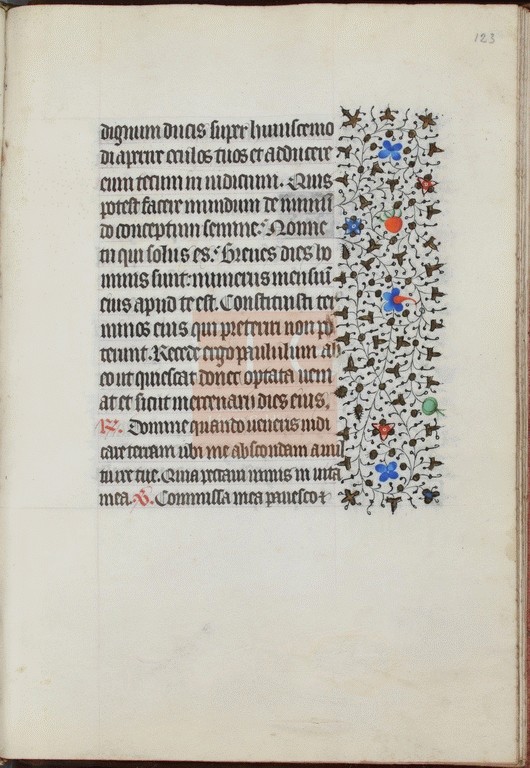 123
dignum ducis super huiuscemo
di aperire oculos tuos et adducere
eum tecum in iudicium. Quis
potest facere mundum de inmū
do conceptum semine? Nonne
tu qui solus es? Breues dies ho
minis sunt: numerus mensiū
eius apud te est. Constituisti ter
minos eius qui preteriri non po
terunt. Recede ergo paululum ab
eo ut quiescat donec optata ueni
at et sicut mercenarii dies eius.
R. Domine quando ueneris iudi
care terram ubi me abscondam a uul
tu ire tue. Quia peccaui nimis in uita
mea. V. Commissa mea pauesco ⁊